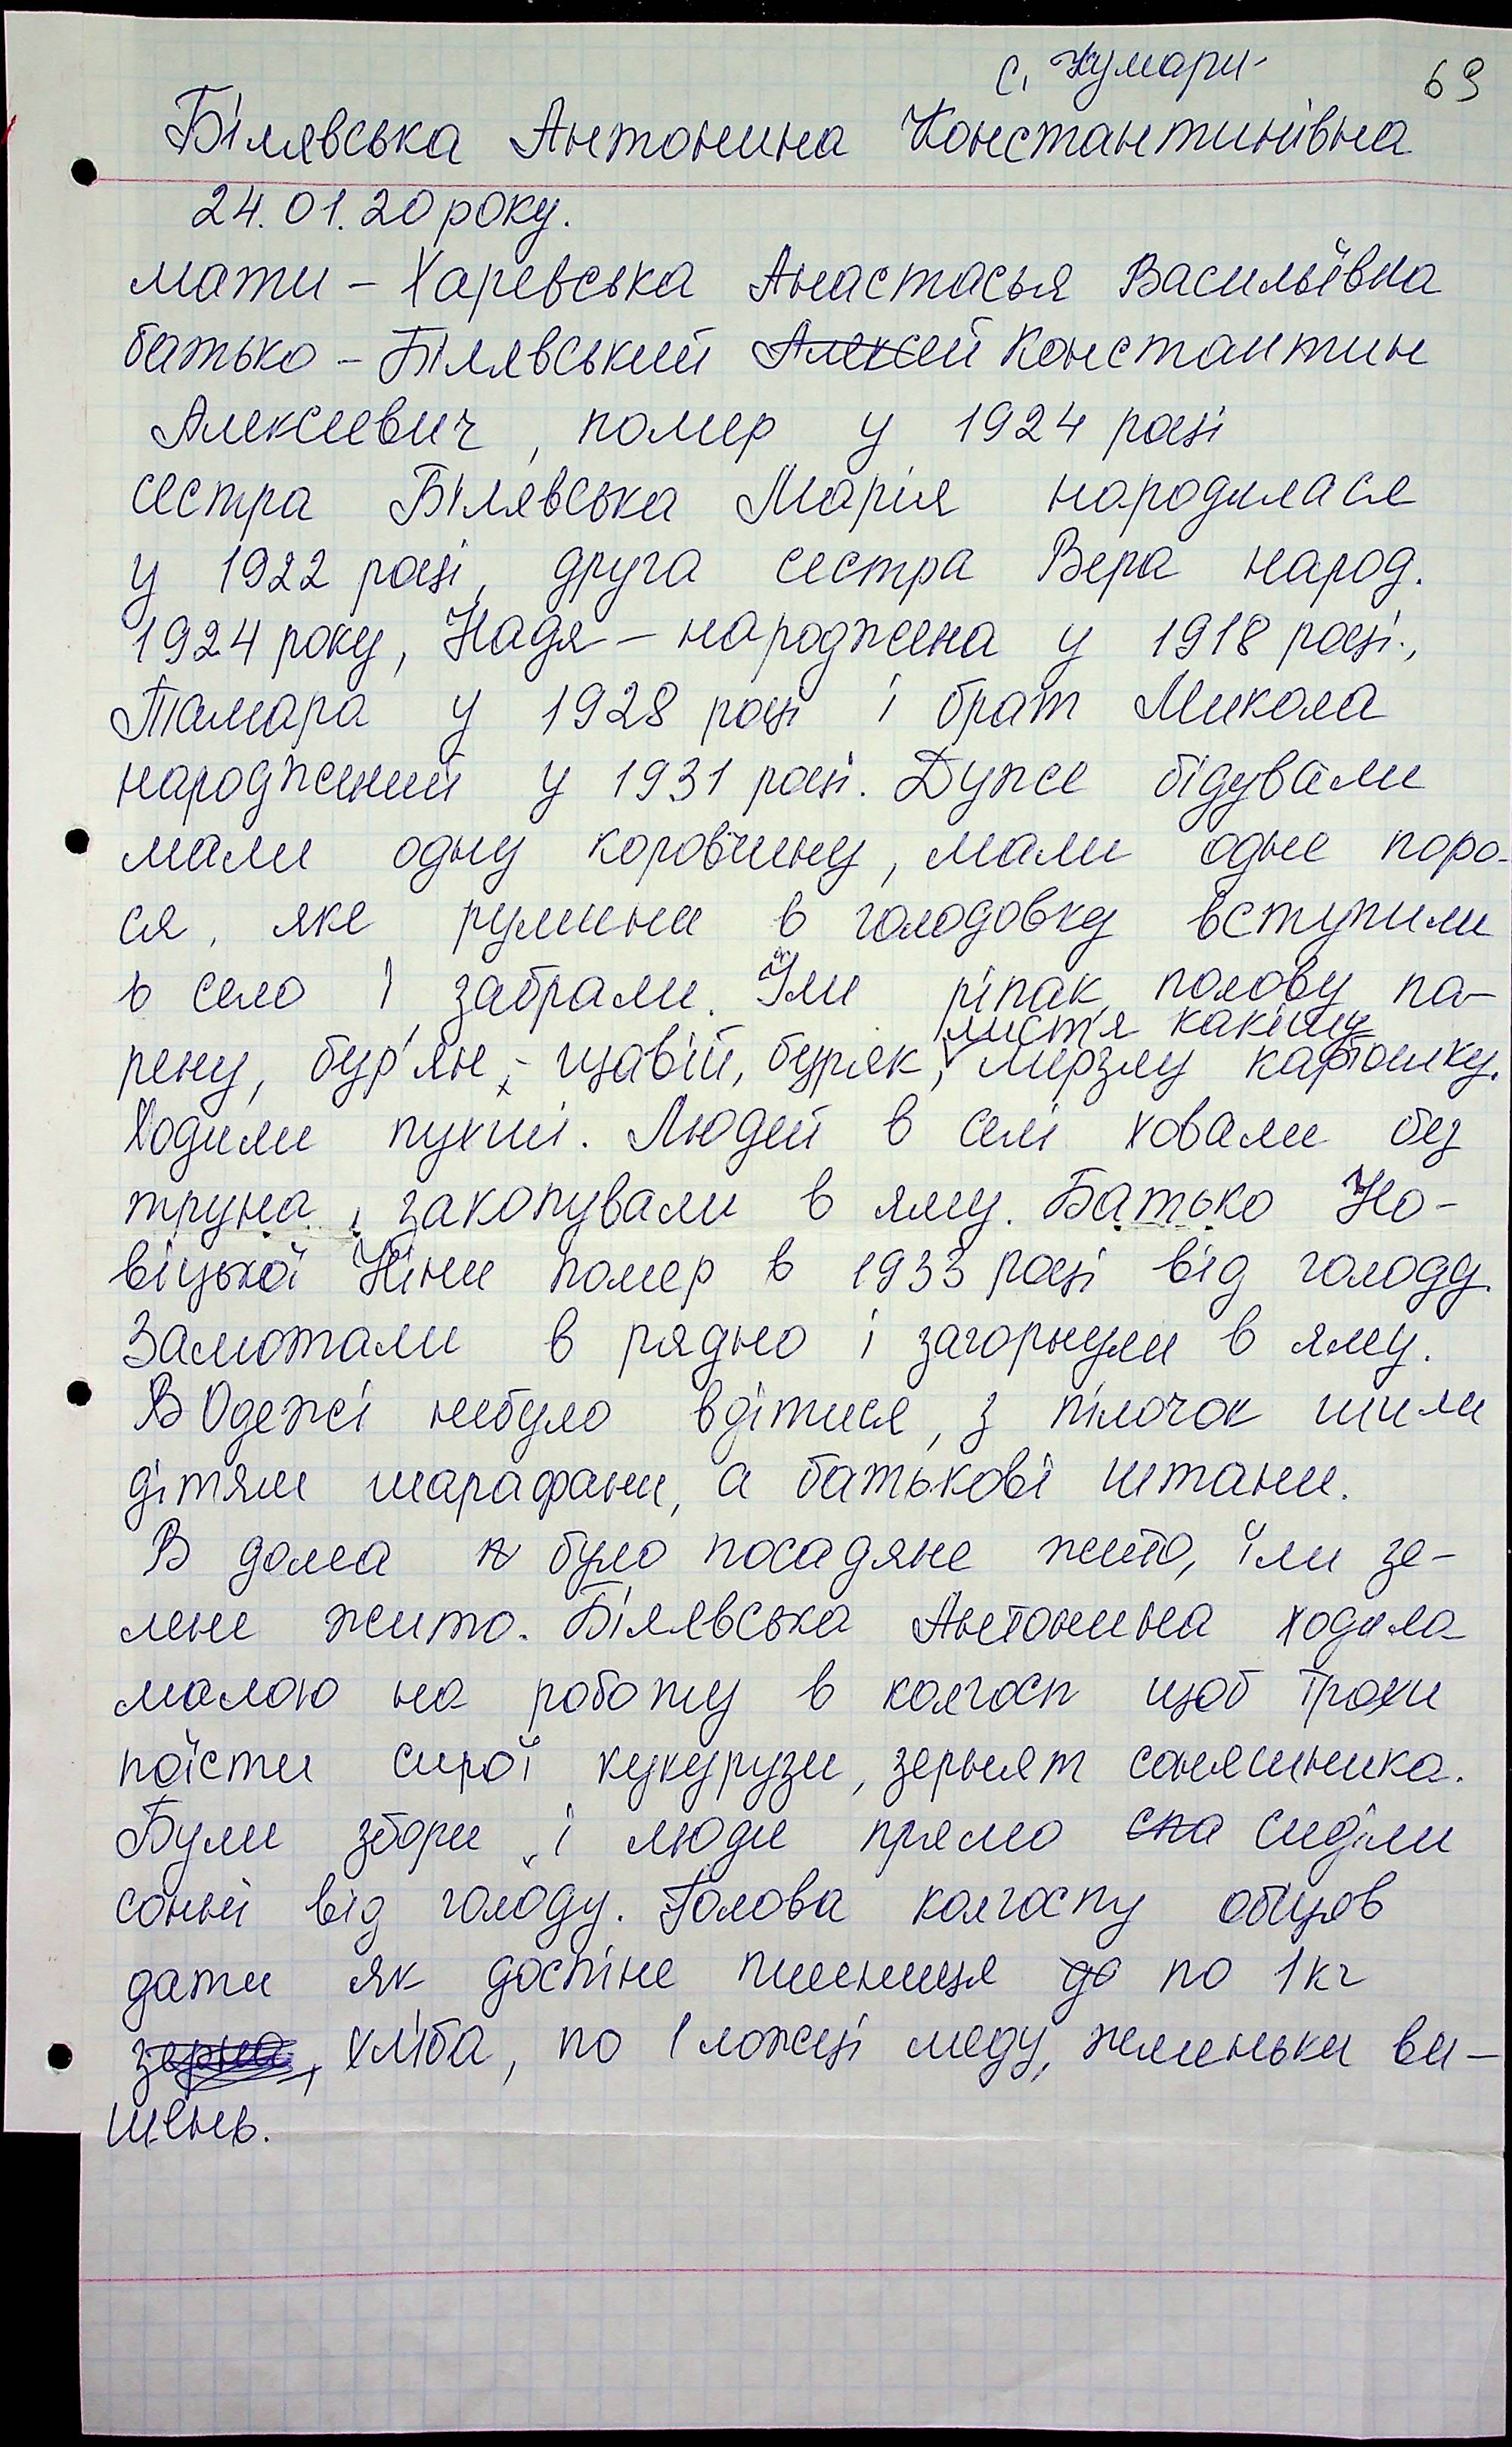 с. Кумари
69
Білявська Антонина Константинівна
24.01.20 року.
мати – Харевська Анастасья Васильївна
батько – Білявський Алексей Константин
Алексеевич, помер у 1924 році
сестра Білявська Марія народилася
у 1922 році, друга сестра Вера народ.
1924 року, Надя – народжена у 1918 році.,
Тамара у 1928 році і брат Микола
народжений у 1931 році. Дуже бідували
мали одну коровчину, мали одне поро-
ся, яке румини в голодовку вступили
в село і забрали. Їли ріпак, полову па-
листя
рену, бур'ян, - щавій, буряк, мерзлу картошку.
Ходили пухлі. Людей в селі ховали без
труна, закопували в яму. Батько Но-
віцької Ніни помер в 1933 році від голоду.
Замотали в рядно і загорнули в яму.
В Одежі небуло вдітися, з пілочок шили
дітям шарафани, а батькові штани.
В дома було посадяне жито, їли зе-
лене жито. Білявська Антонина ходила
малою на роботу в колгосп щоб трохи
поїсти сирої кукурузи, зернят соняшника.
Були збори, і люди прямо спа сиділи
сонні від голоду. Голова колгоспу обіцяв
дати як достіне пшениця до по 1 кг
зерна, хліба, по 1 ложці меду, жменьки ви-
шень.